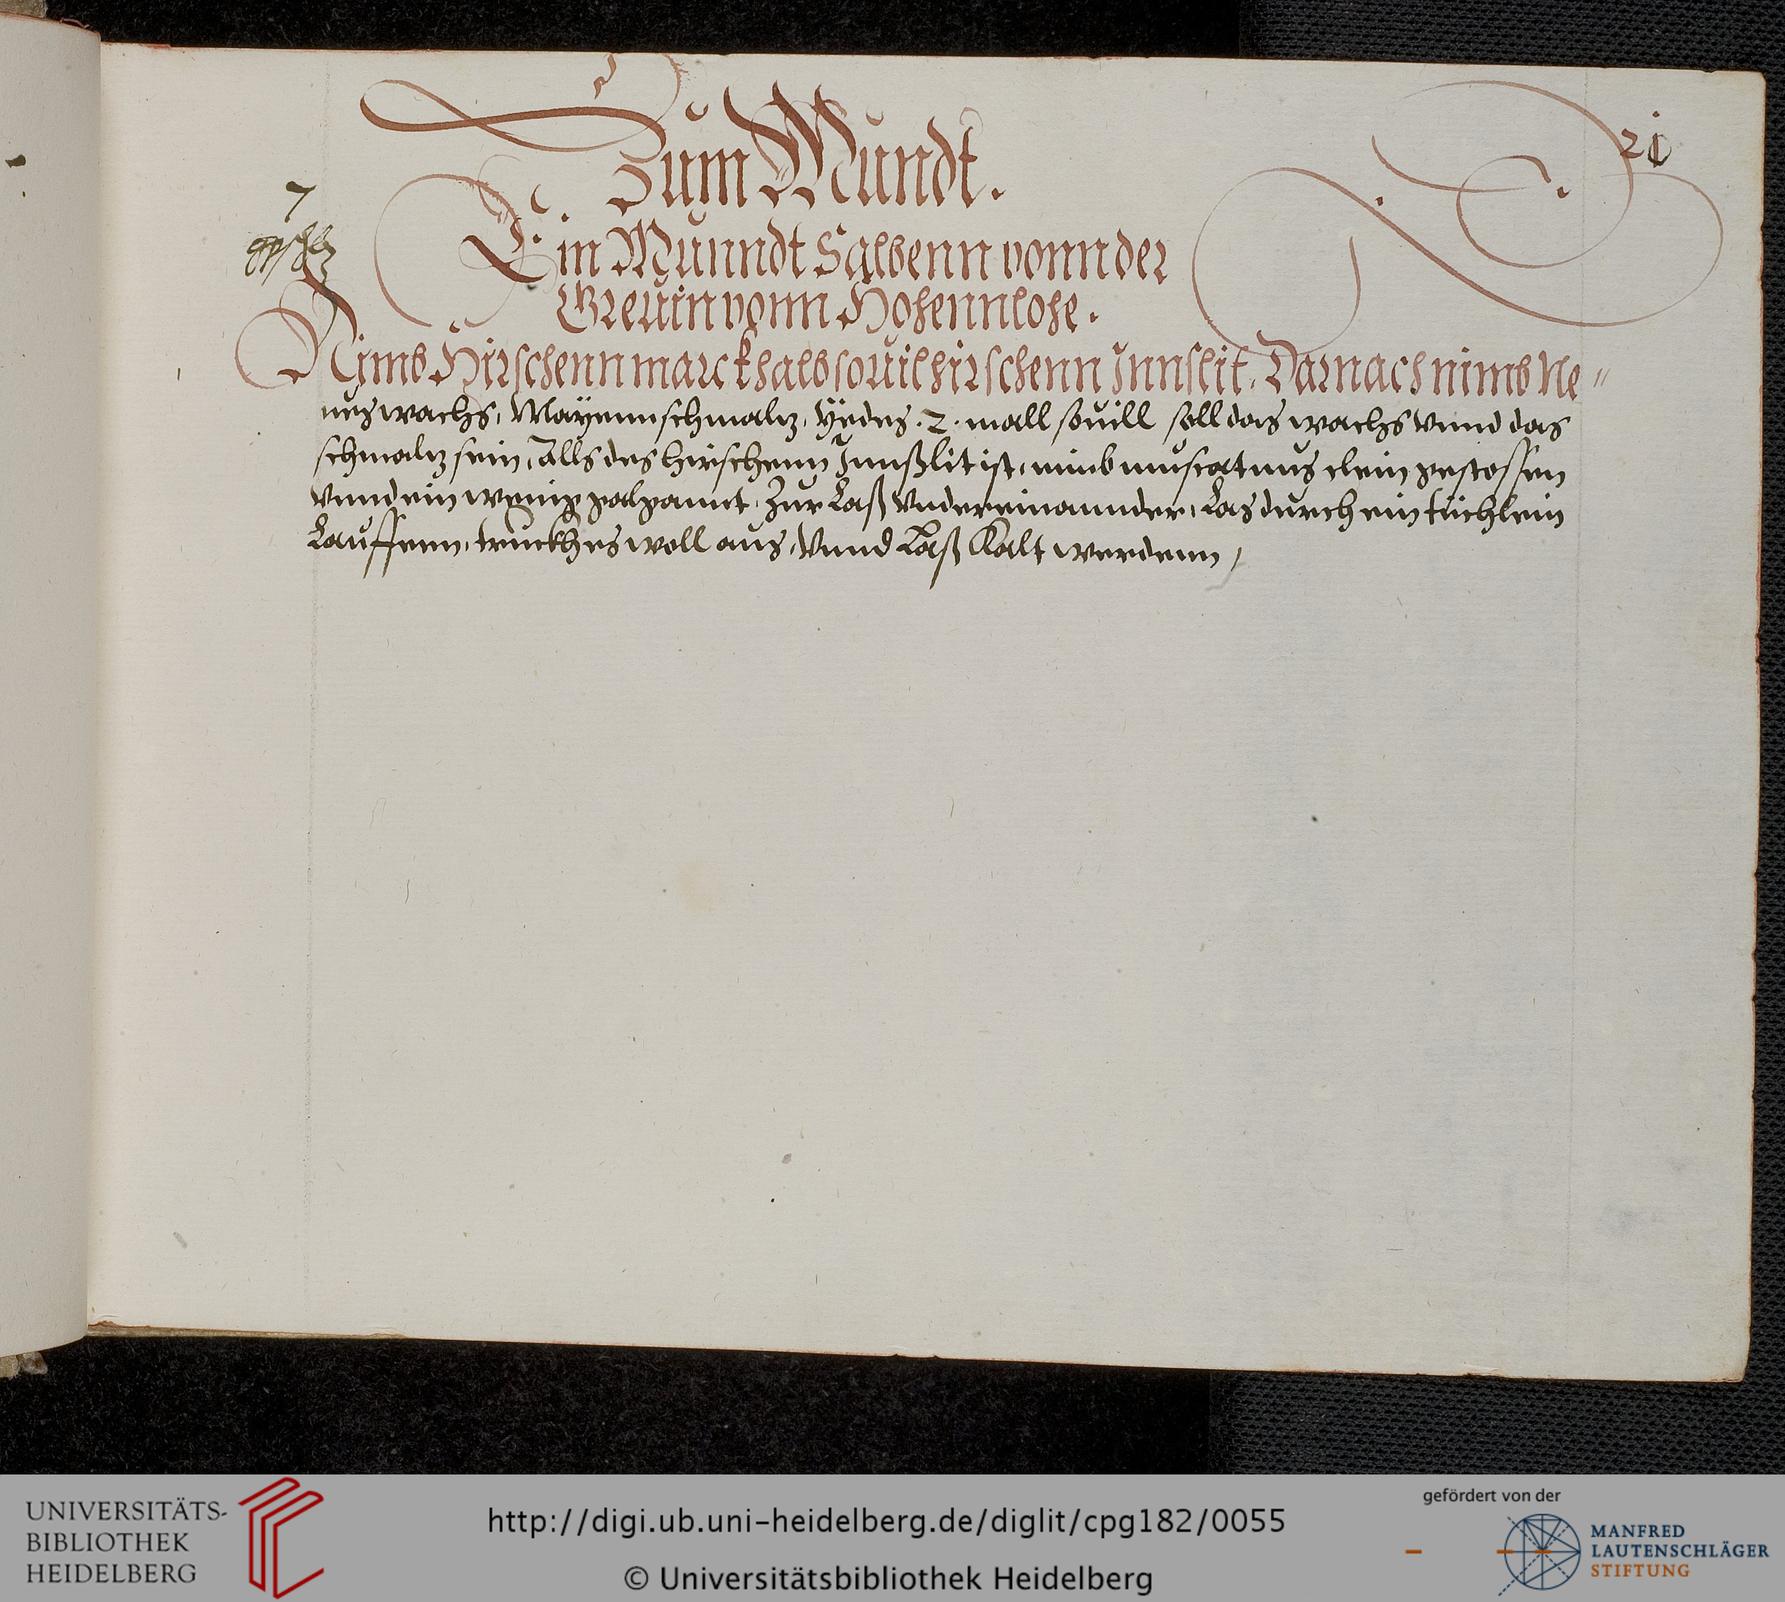 Zum Mundt.
21
7
Ein Munndt Salbenn vonn der
Grevin vonn Hohennlohe.
Nimb Hirschenn marck halb sovil hirschenn Jnnslit. Darnach nimb Ne〃
ues wachs, Mayenn schmalz, yedes .2. mall souill soll das wachs vnnd das
schmalz sein, Alls des hirschenn Jnnßlit ist, nimb muscatnus clein gestossen
vnnd ein wenig galgannt, Zur Laß vndereinannder, Las durch ein tüchlein
Lauffenn, truckh es woll aus, Vnnd Laß Kalt werdenn,
UNIVERSITÄTS-
BIBLIOTHEK
HEIDELBERG
http://digi.ub.uni-heidelberg.de/diglit/cpg182/0055
© Universitätsbibliothek Heidelberg
gefördert von der
MANFRED
LAUTENSCHLÄGER
STIFTUNG